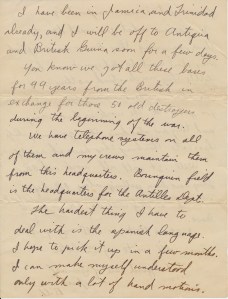 I have been in Jamaica and Trinidad
already, and I will be off to Antigua
and British Guina soon for a few days.
You know we got all these bases
for 99 years from the British in
exchange for those 50 old destroyers
during the beginning of the war.
We have telephone systems on all
of them and my crews maintain them
from this headquarters. Borinquen field
is the headquarters for the Antilles Dept.
The hardest thing I have to
deal with is the spanish language.
I hope to pick it up in a few months.
I can make myself understood
only with a lot of hand motions.